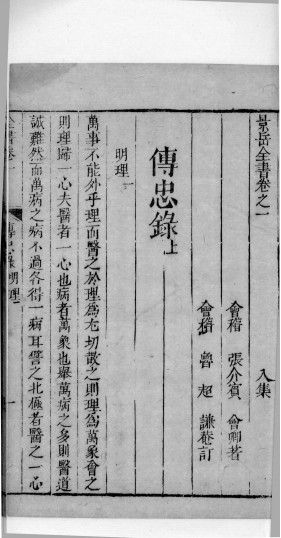 景岳全書卷之一
入集
會稽 張介賓 會卿著
會稽 魯超 謙菴訂
傳忠錄上
明理一
萬事不能外乎理而醫之於理爲尤切散之則理爲萬象會之
則理歸一心夫醫者一心也病者萬象也舉萬病之多則醫道
誠難然而萬病之病不過各得一病耳譬之北極者醫之一心
全書卷一
傳忠錄 明理
一